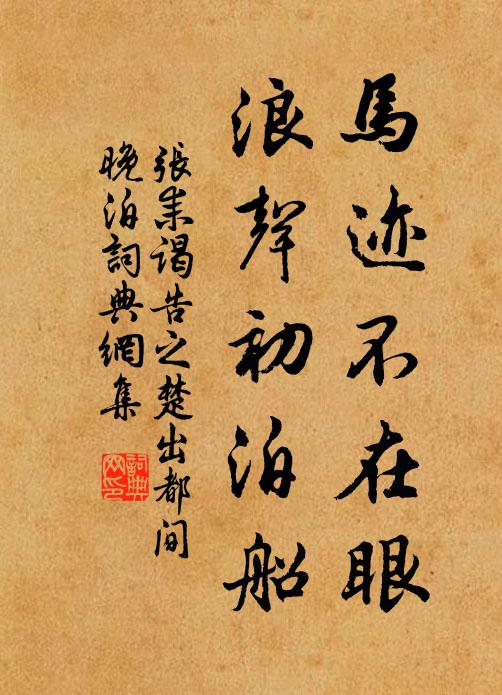 馬迹不在眼
浪聲初泊船
張耒謁告之楚出都间
晚泊詞典網集
詞典网印